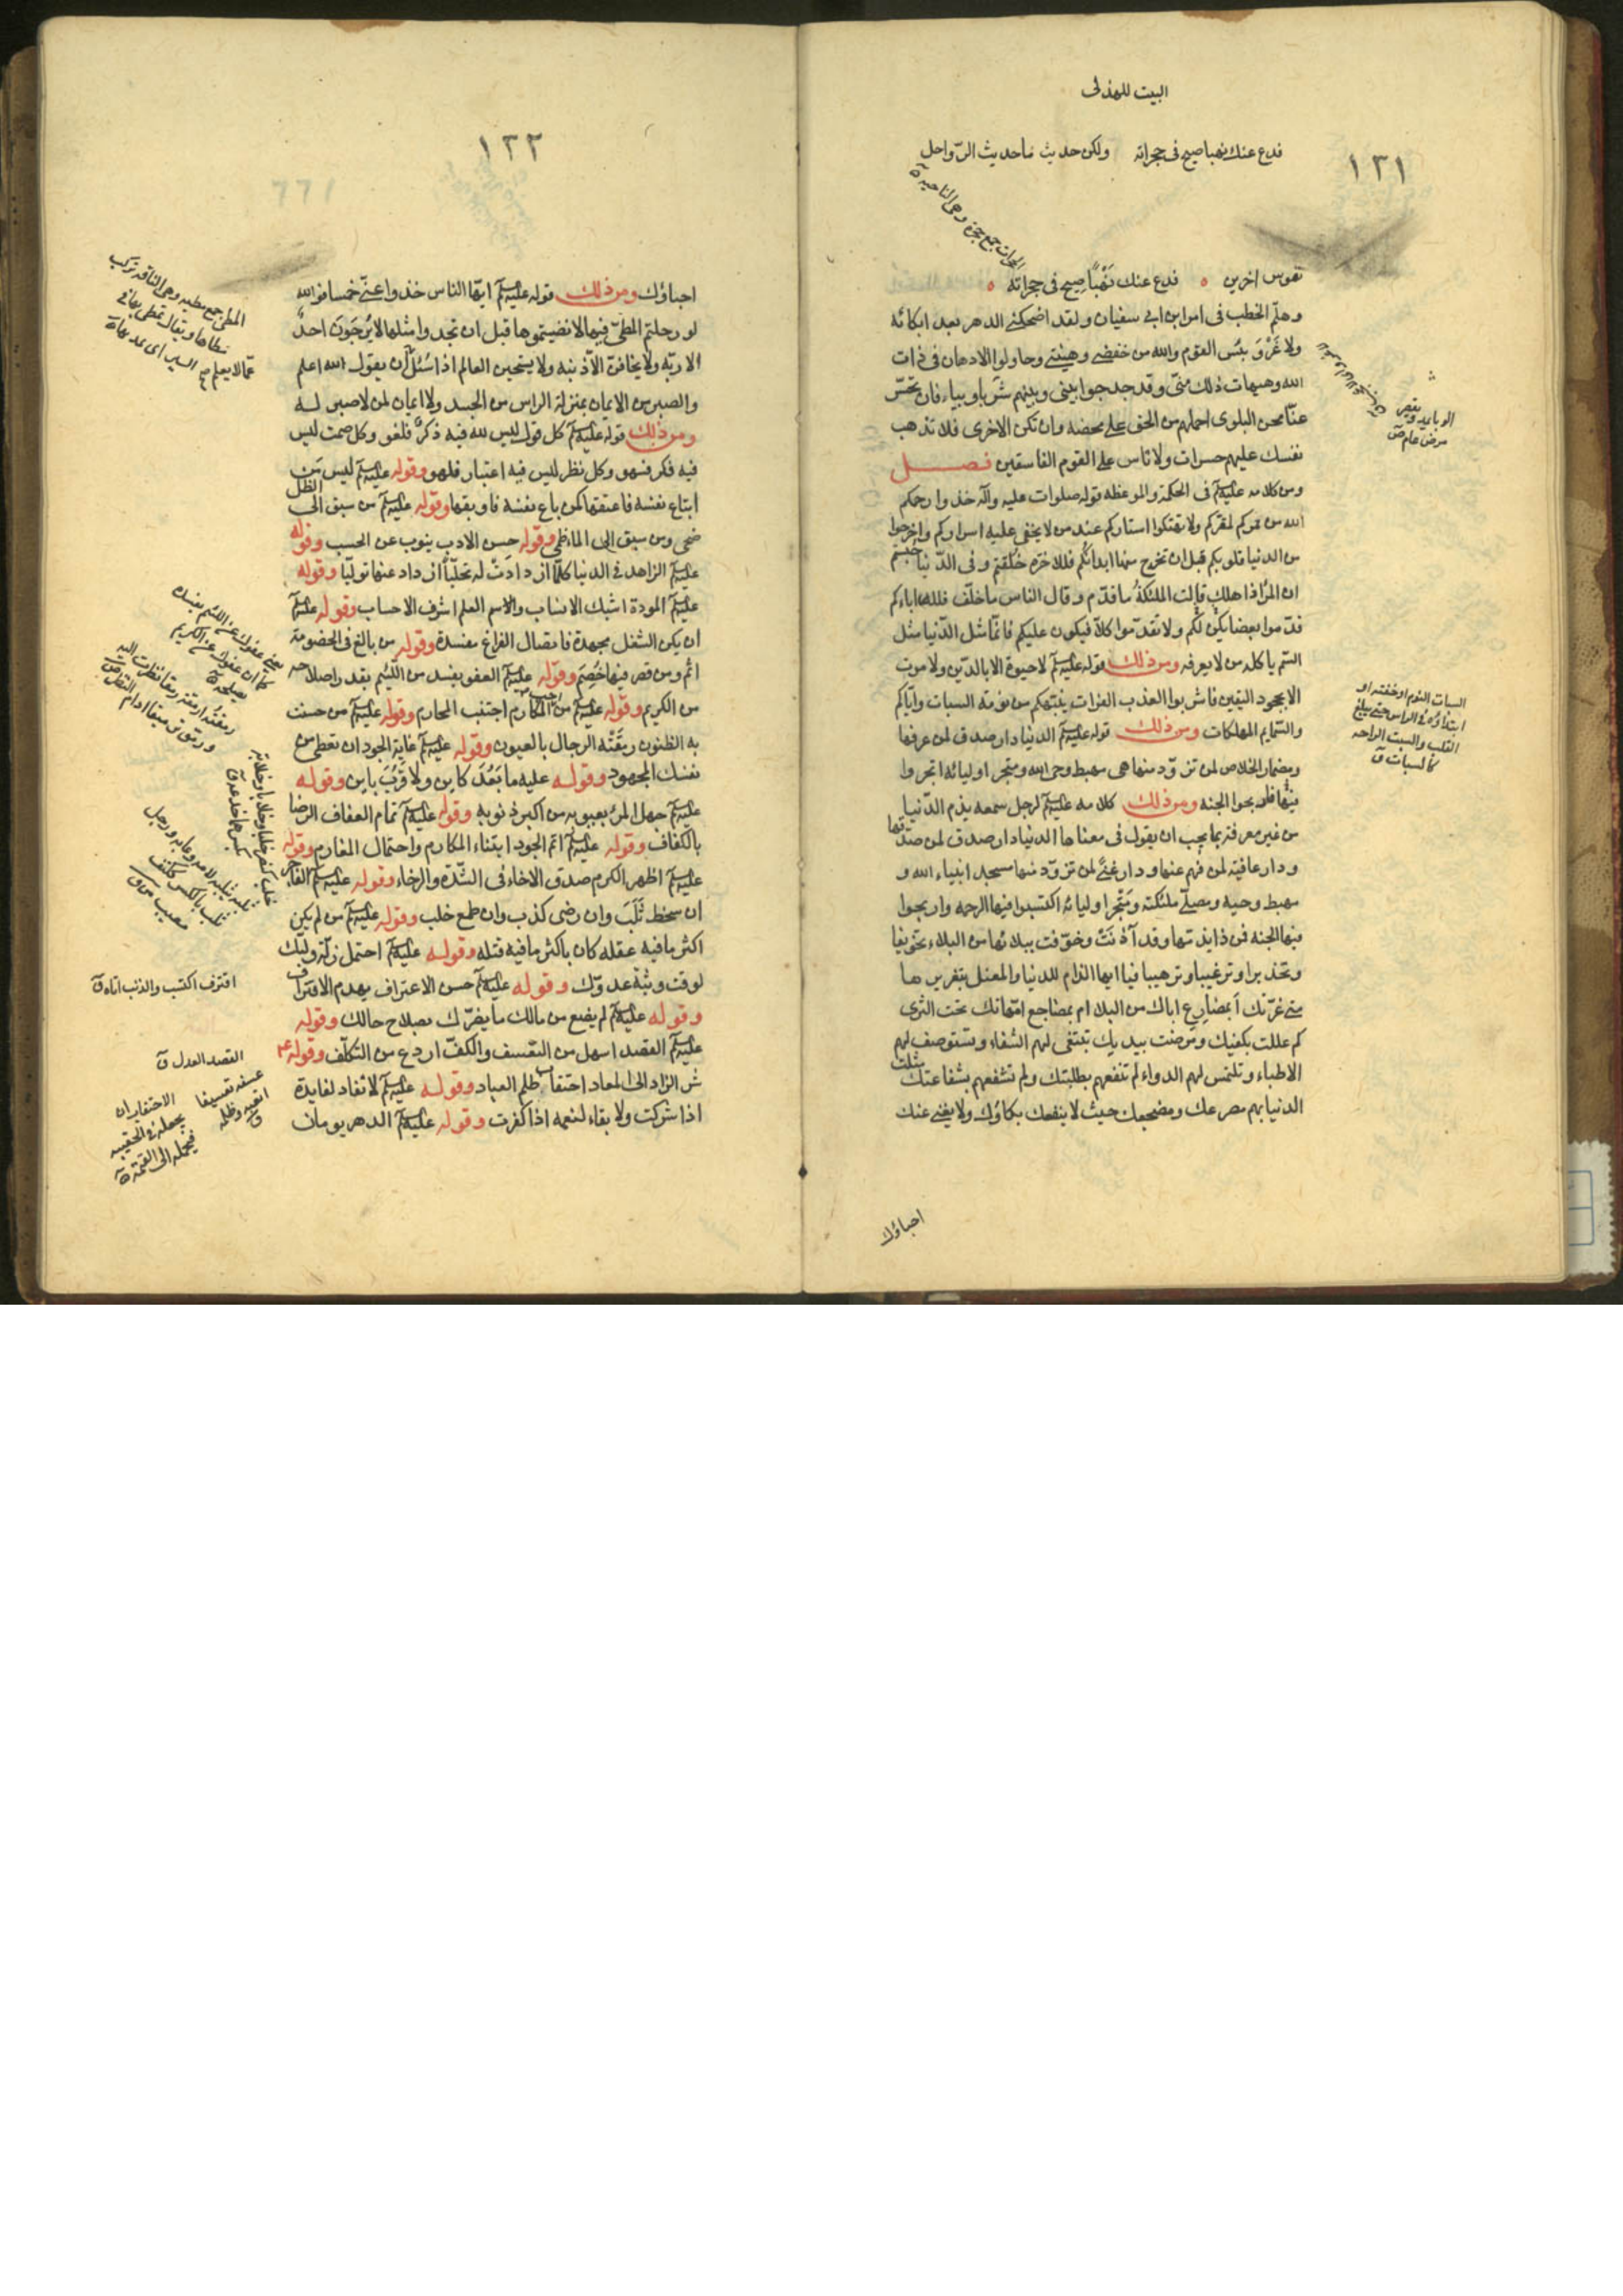 البيت للهذلى
فدع عنك نهبا صيح فى حجراته ولكن حديث ماحديث الرواحل
١٣١
الحجرات جمع حجرة وهى الناحية
نفوس اخرين فدع عنك نَهْباً صِيحَ فى حجراته
وهلم الخطب فى امر ابن ابى سفيان ولقد اضحكنى الدهر بعد ابكائه
ولا غَرْوَ بئس القوم والله من خفضنى وهيننى وحاولوا الادهان فى ذات
الله وهيهات ذلك منّى وقد جدحوا بينى وبينهم شربا وبيا، فان تحسر
عنّا محن البلوى احملهم من الحق على محضه وان تكن الاخرى فلا تذهب
نفسك عليهم حسرات ولا تاس على القوم الفاسقين فصل
ومن كلامه عليه السلم فى الحكمة والموعظه قوله صلوات عليه وآله خذوا رحمكم
الله من ممركم لمقركم ولا تهتكوا استاركم عند من لا يخفى عليه اسراركم واخرجوا
من الدنيا قلوبكم قبل ان تخرج منها ابدانكم فللاخرة خُلقتم وفى الدّنيا حبستم
ان المرٔ اذا هلك قالت الملئكةُ ما قدّم وقال الناس ما خلّف فلله اباءكم
قدّموا بعضا يكن لكم ولا تقدّموا كلاّ فيكون عليكم فانّما مثل الدّنيا مثل
السّم ياكله من لا يعرفه ومن ذلك قوله عليه السلم لا حيوة الا بالدّين ولا موت
الا بجحود اليقين فاشربوا العذب الفرات ينبّهكم من نومة السبات واياكم
والسّمايم المهلكات ومن ذلك قوله عليه السلم الدنيا دار صدق لمن عرفها
ومضمار الخلاص لمن تزوّد منها هى مهبط وحى الله ومتجر اوليائه اتجروا
فيها فربحوا الجنه ومن ذلك كلامه عليه السلم لرجل سمعه يذم الدّنيا
من غير معرفة بما يجب ان يقول فى معناها الدنيا دار صدق لمن صدّقها
ودار عافية لمن فهم عنها ودار غنًى لمن تزوّد منها مسجد انبياء الله و
مهبط وحيه ومصلّى ملئكته ومَتْجر اوليائه اكتسبوا فيها الرحمه وربحوا
فيها الجنه فمن ذا يذمها وقد آذنَتْ وخوّفت ببلائها من البلاء تخويفا
وتحذيرا وترغيبا وترهيبا فيا ايها الذام للدنيا والمعتل بتغريرها
متى غرّتك أبمصارع اباك من البلا ام بمضاجع امّهاتك تحت الثرى
كم عللت بكفيك ومرضت بيديك تبتغى لهم الشفاء وتستوصف لهم
الاطباء وتلتمس لهم الدواء لم تنفعهم بطلبتك ولم تشفعهم بشفاعتك مثلت
الدنيا بهم مصرعك ومضجعك حيث لا ينفعك بكاؤك ولا يغنى عنك
احباؤك
الوبا يمد ويقصر
مرض عام ص
السبات النوم او خفته او
ابتداؤه فى الراس حتى يبلغ
القلب والسبت الراحه
كالسبات ق
١٣٢
احباؤك ومن ذلك قوله عليه السلم ايّها الناس خذوا عنّى خمسا فوالله
لو رحلتم المطىّ فيها لانضيتموها قبل ان تجدوا مثلها لا يَرْجُوَنّ احدٌ
الا ربّه ولا يخافنّ الاّ ذنبه ولا يستحين العالم اذا سُئل أن يقول الله اعلم
والصبر من الايمان بمنزلة الراس من الجسد ولا ايمان لمن لا صبر له
ومن ذلك قوله عليه السلم كل قول ليس لله فيه ذكرٌ فلغو وكل صمت ليس
فيه فكر فسهو وكل نظر ليس فيه اعتبار فلهو وقوله عليه السلم ليس من
ابتاع نفسه فاعتقها كمن باع نفسه فاوبقها وقوله عليه السلم من سبق الى الظل
ضحى ومن سبق الى الماء ظمئ وقوله حسن الادب ينوب عن الحسب وقوله
عليه السلم الزاهد فى الدنيا كلّما ازدادت له تحلّياً ازداد عنها تولّيا وقوله
عليه السلم المودة اشبك الانساب والاسم العلم اشرف الاحساب وقوله عليه السلم
ان يكن الشغل مجهدة فاتصال الفراغ مفسدة وقوله من بالغ فى الخصومة
اثم ومن قصر فيها خُصِمَ وقوله عليه السلم العفو يفسد من اللئيم بقدر اصلاحه
من الكريم وقوله عليه السلم من احب المكارم اجتنب المحارم وقوله عليه السلم من حسنت
به الظنون رمَقَتْه الرجال بالعيون وقوله عليه السلم غاية الجود ان تعطى من
نفسك المجهود وقوله عليه ما بَعُدَ كاين ولا قَرُبَ باين وقوله
عليه السلم جهل المرٔ بعيوبه من اكبر ذنوبه وقوله عليه السلم تمام العفاف الرضا
بالكفاف وقوله عليه السلم اتم الجود ابتناء المكارم واحتمال المغارم وقوله
عليه السلم اظهر الكرم صدق الاخاء فى الشّدّة والرخاء وقوله عليه السلم الفاجر
ان سخط ثَلَبَ وان رضى كذب وان طمع خلب وقوله عليه السلم من لم يكن
اكثر ما فيه عقله كان باكثر ما فيه قتله وقوله عليه السلم احتمل زلّة وليّك
لوقت وثبة عدوّك وقوله عليه السلم حسن الاعتراف يهدم الاقتراف
وقوله عليه السلم لم يضع من مالك ما بصّرك صلاح حالك وقوله
عليه السلم القصد اسهل من التعسف والكفّ اردع من التكلّف وقوله ع
شر الزاد الى المعاد احتقاب ظلم العباد وقوله عليه السلم لا نفاد لفايدة
اذا شكرت ولا بقاء لنعمه اذا كفرت وقوله عليه السلم الدهر يومان
المطى جمع مطيه وهى الناقة تركب
مطاها
يعنى عفوك عن اللئيم يفسده
كما ان عفوك عن الكريم
يصلحه
اقترف اكتسب والذنب اتاه ق
القصد العدل ق
عسفه تعسيفا
اتعبه وظلمه
ق
الاحتقاب ان
يجعله فى الحقيبه